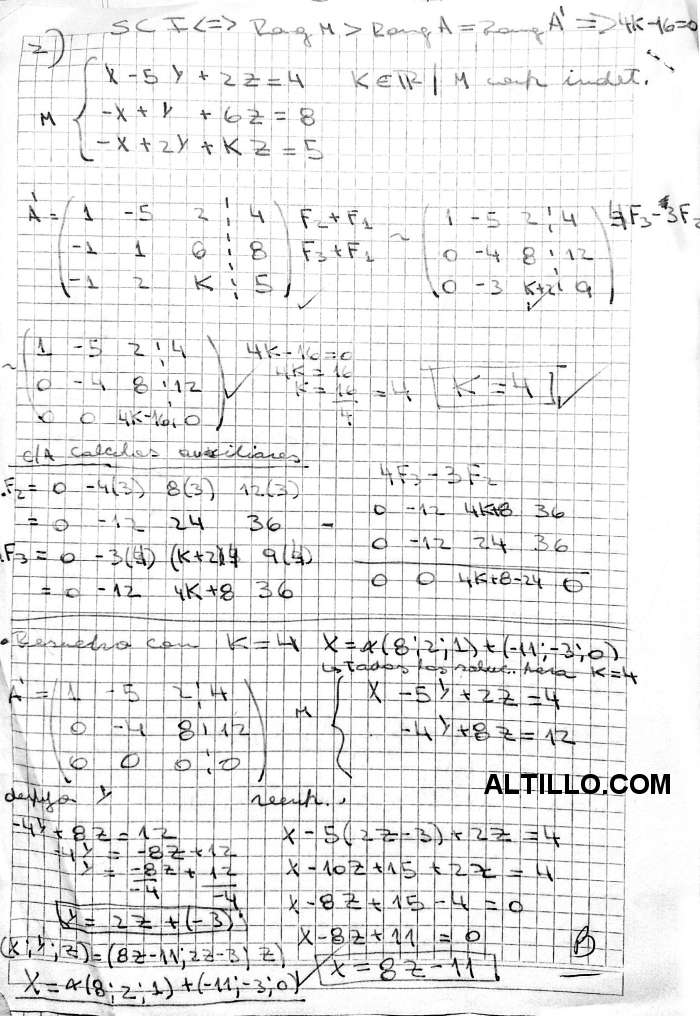 SCI <=> Rang M > Rang A = Rang A' => 4K-16=0
2)
M { X - 5Y + 2Z = 4    K∈R / M indet.
-X + Y + 6Z = 8
-X + 2Y + KZ = 5
A' = ( 1 -5 2 ¦ 4 ) F2+F1 ~ ( 1 -5 2 ¦ 4 ) 4F3-3F2
( -1 1 6 ¦ 8 ) F3+F1 ( 0 -4 8 ¦ 12 )
( -1 2 K ¦ 5 ) ✓ ( 0 -3 K+2 ¦ 9 ) ✓
~ ( 1 -5 2 ¦ 4 ) 4K-16=0
( 0 -4 8 ¦ 12 ) ✓ 4K = 16
( 0 0 4K-16 ¦ 0 ) K = 16/4 = 4 [K = 4] ✓
c/A calculos auxiliares
.F2 = 0 -4(3) 8(3) 12(3)
= 0 -12 24 36
.F3 = 0 -3(4) (K+2)4 9(4)
= 0 -12 4K+8 36
4F3 - 3F2
0 -12 4K+8 36
- 0 -12 24 36
0 0 4K+8-24 0
. Resuelvo con K=4 X=α(8;2;1)+(-11;-3;0)
Todas las soluc. para K=4
A' = ( 1 -5 2 ¦ 4 )
( 0 -4 8 ¦ 12 )
( 0 0 0 ¦ 0 )
M { X - 5Y + 2Z = 4
-4Y + 8Z = 12
ALTILLO.COM
despejo Y
-4Y + 8Z = 12
-4Y = -8Z + 12
Y = -8Z/-4 + 12/-4
Y = 2Z + (-3)
(X;Y;Z) = (8Z-11; 2Z-3; Z)
X = α(8;2;1) + (-11;-3;0) ✓
reemp..
X - 5(2Z-3) + 2Z = 4
X - 10Z + 15 + 2Z = 4
X - 8Z + 15 - 4 = 0
X - 8Z + 11 = 0
X = 8Z - 11
B